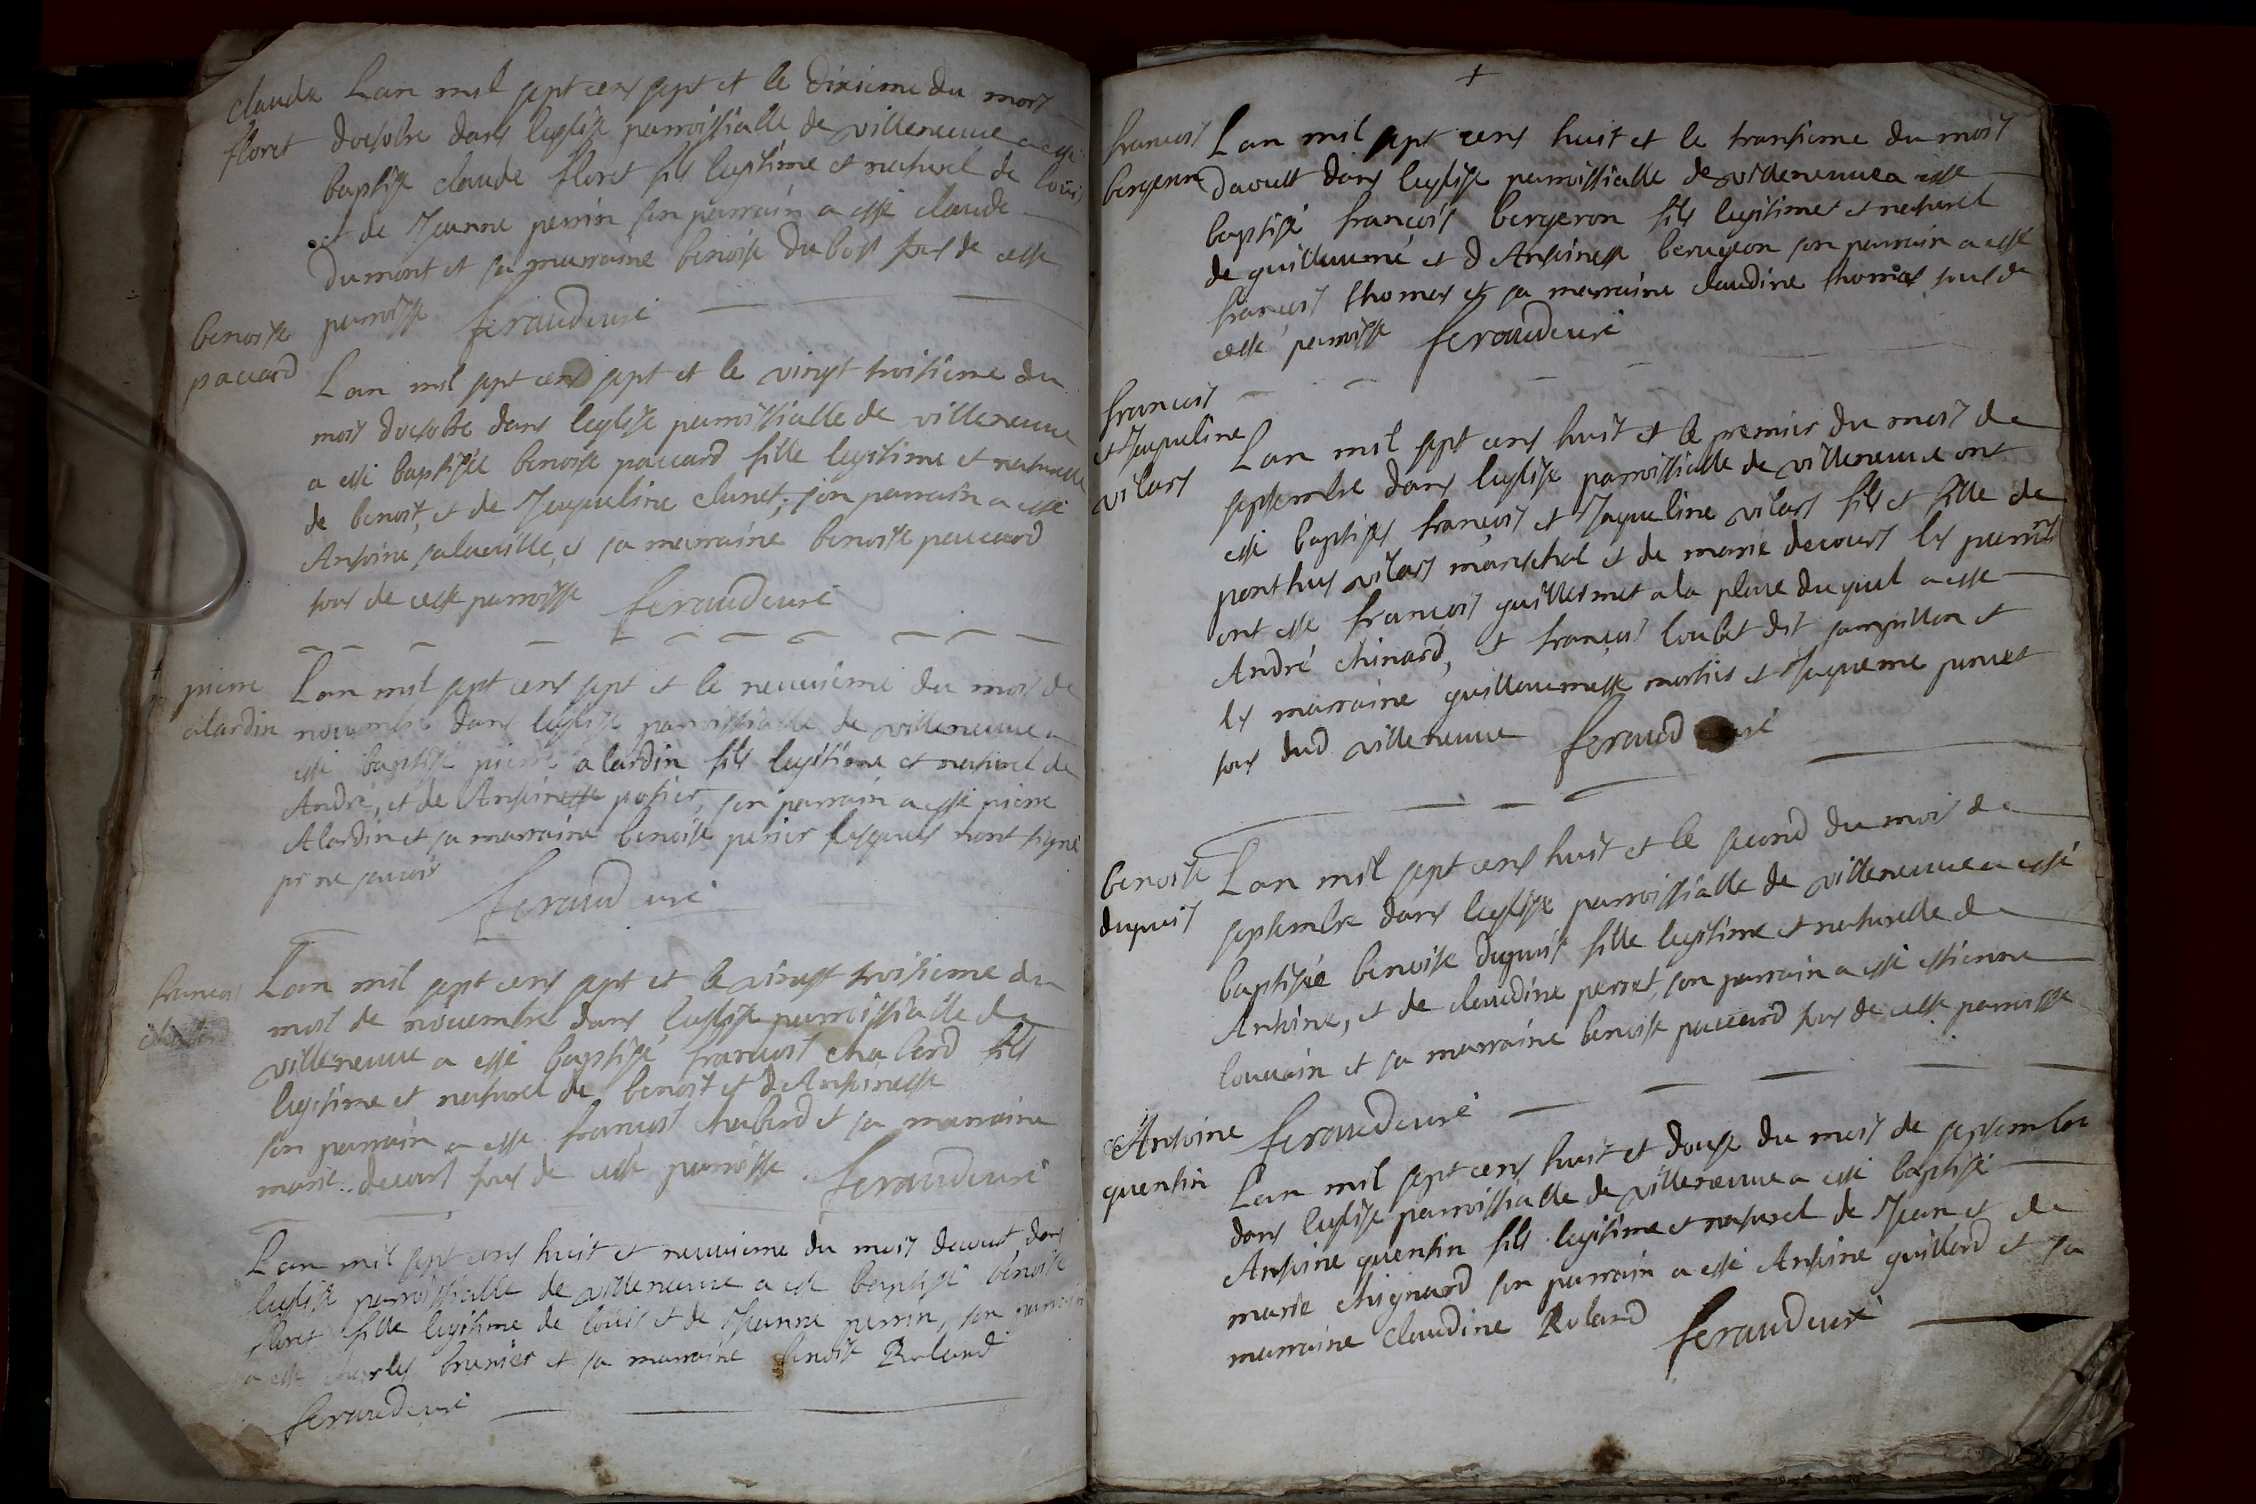 claude
floret
Lan mil sept cens sept et le dixieme du mois
doctobre dans leglise parroissialle de villeneuve a esté
baptisé claude floret fils legitime et naturel de loüis
et de Jeanne perrin son parrain a esté claude
dumont et sa marraine benoite dubost tous de cette
parroisse feraud curé
benoite
paccard
Lan mil sept cens sept et le vingt troisieme du
mois doctobre dans leglise parroissialle de villeneuve
a esté baptisée benoite paccard fille legitime et naturelle
de benoit, et de Jaqueline clunet, son parrain a esté
Antoine salaville, et sa marraine benoite paccard
tous de cette parroisse feraud curé
pierre
alardin
Lan mil sept cens sept et le neuvieme du mois de
novembre dans leglise parroissialle de villeneuve a
esté baptisé pierre alardin fils legitime et naturel de
André, et de Antoinette potier, son parrain a esté pierre
Alardin et sa marraine benoite perier lesquels nont signé
pr ne scavoir
feraud curé
francois
Lan mil sept cens sept et le vingt troisieme du
mois de novembre dans leglise parroissialle de
villeneuve a esté baptisé francois chabard fils
legitime et naturel de benoit et dAntoinette
son parrain a esté francois chabard et sa marraine
marie decourt tous de cette parroisse feraud curé
Lan mil sept cens huit et neuvieme du mois daoust dans
leglise parroissialle de villeneuve a esté baptisé benoite
floret fille legitime de loüis et de Jeanne perrin, son parrain
a esté charles brunier et sa marraine benoite Roland
feraud curé
francois
bergeron
Lan mil sept cens huit et le trantieme du mois
daoust dans leglise parroissialle de villeneuve a esté
baptisé francois bergeron fils legitime et naturel
de guillaume et dAntoinette bergeon son parrain a esté
francois thomas et sa marraine claudine thomas tous de
cette parroisse feraud curé
francois
et Jaqueline
vilars
Lan mil sept cens huit et le premier du mois de
septembre dans leglise parroissialle de villeneuve ont
esté baptisés francois et Jaqueline vilars fils et fille de
ponthus vilars mareschal et de marie decourt les parrins
ont esté francois guillermet a la place duquel a esté
André chinard, et francois loubet dit sampillon et
les marraine guillaumette mortier et Jaqueme
tous dud villeneuve feraud curé
benoite
dupuis
Lan mil sept cens huit et le second du mois de
septembre dans leglise parroissialle de villeneuve a esté
baptisée benoite dupuis fille legitime et naturelle de
Antoine, et de claudine perret, son parrain a esté estienne
louvain et sa marraine benoite paccard tous de cette parroisse
feraud curé
Antoine
quentin
Lan mil sept cens huit et douse du mois de septembre
dans leglise parroissialle de villeneuve a esté baptisé
Antoine quentin fils legitime et naturel de Jean et de
marie chignard son parrain a esté Antoine guillard et sa
marraine claudine Roland feraud curé